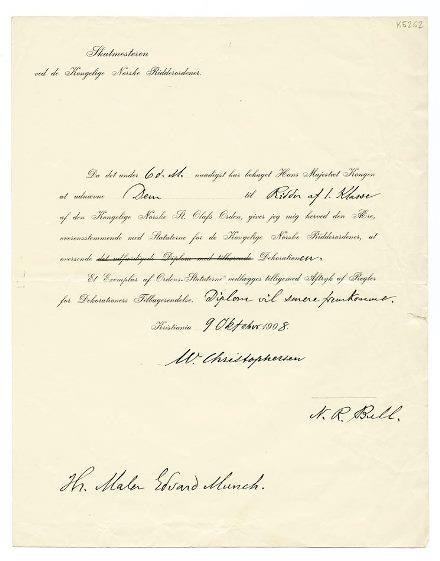 K5262
Skatmesteren
ved de Kongelige Norske Ridderordener.
Da det under 6 d. M. naadigst har behaget Hans Majestæt Kongen
at udnævne Dem til Ridder af 1. Klasse
af den Kongelige Norske St. Olafs Orden, gives jeg mig herved den Ære,
overensstemmende med Statuterne for de Kongelige Norske Ridderordener, at
oversende det udfærdigede Diplom med tilhørende Dekorationen.
Et Exemplar af Ordens-Statuterne vedlægges tilligemed Aftryk af Regler
for Dekorationers Tilbagesendelse. Diplom vil senere fremkomme.
Kristiania 9 Oktober 1908.
W. Christophersen
N. R. Bull.
Hr. Maler Edvard Munch.